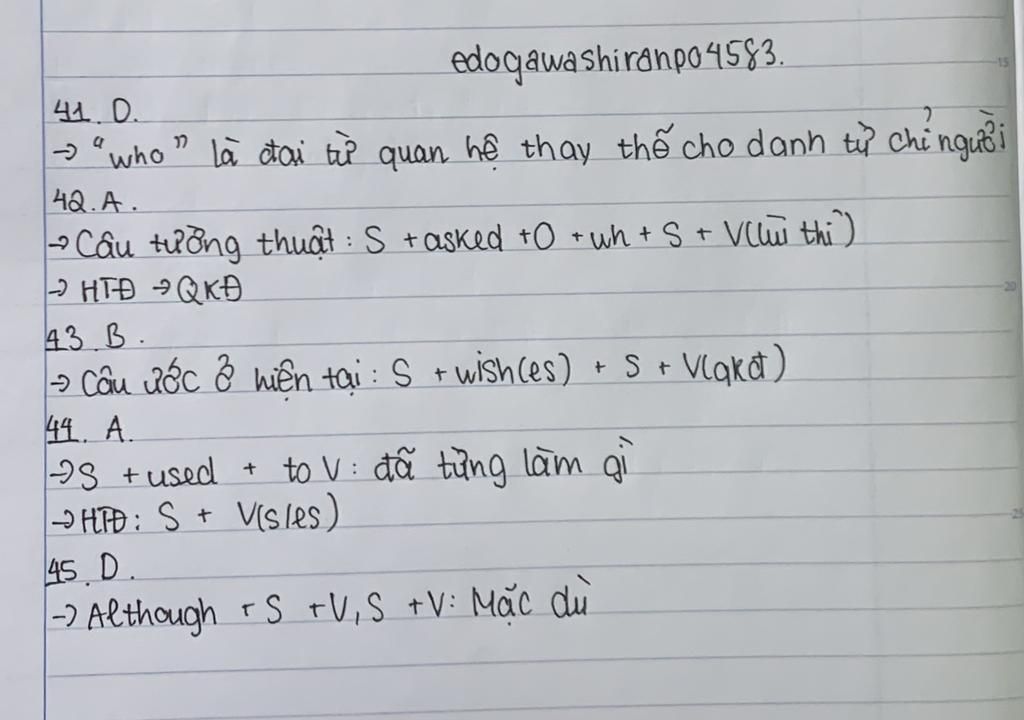 edogawashiranpo4583.
41. D.
→ "who" là đại từ quan hệ thay thế cho danh từ chỉ người
42. A.
→ Câu tường thuật: S + asked + O + wh + S + V(lùi thì)
→ HTĐ → QKĐ
43. B.
→ Câu ước ở hiện tại: S + wish(es) + S + V(qkđ)
44. A.
→ S + used + to V: đã từng làm gì
→ HTĐ: S + V(s/es)
45. D.
→ Although + S + V, S + V: Mặc dù
15
20
25